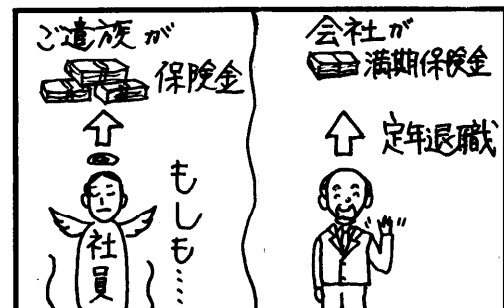 ご遺族が
保険金
もしも……
社員
会社が
満期保険金
定年退職